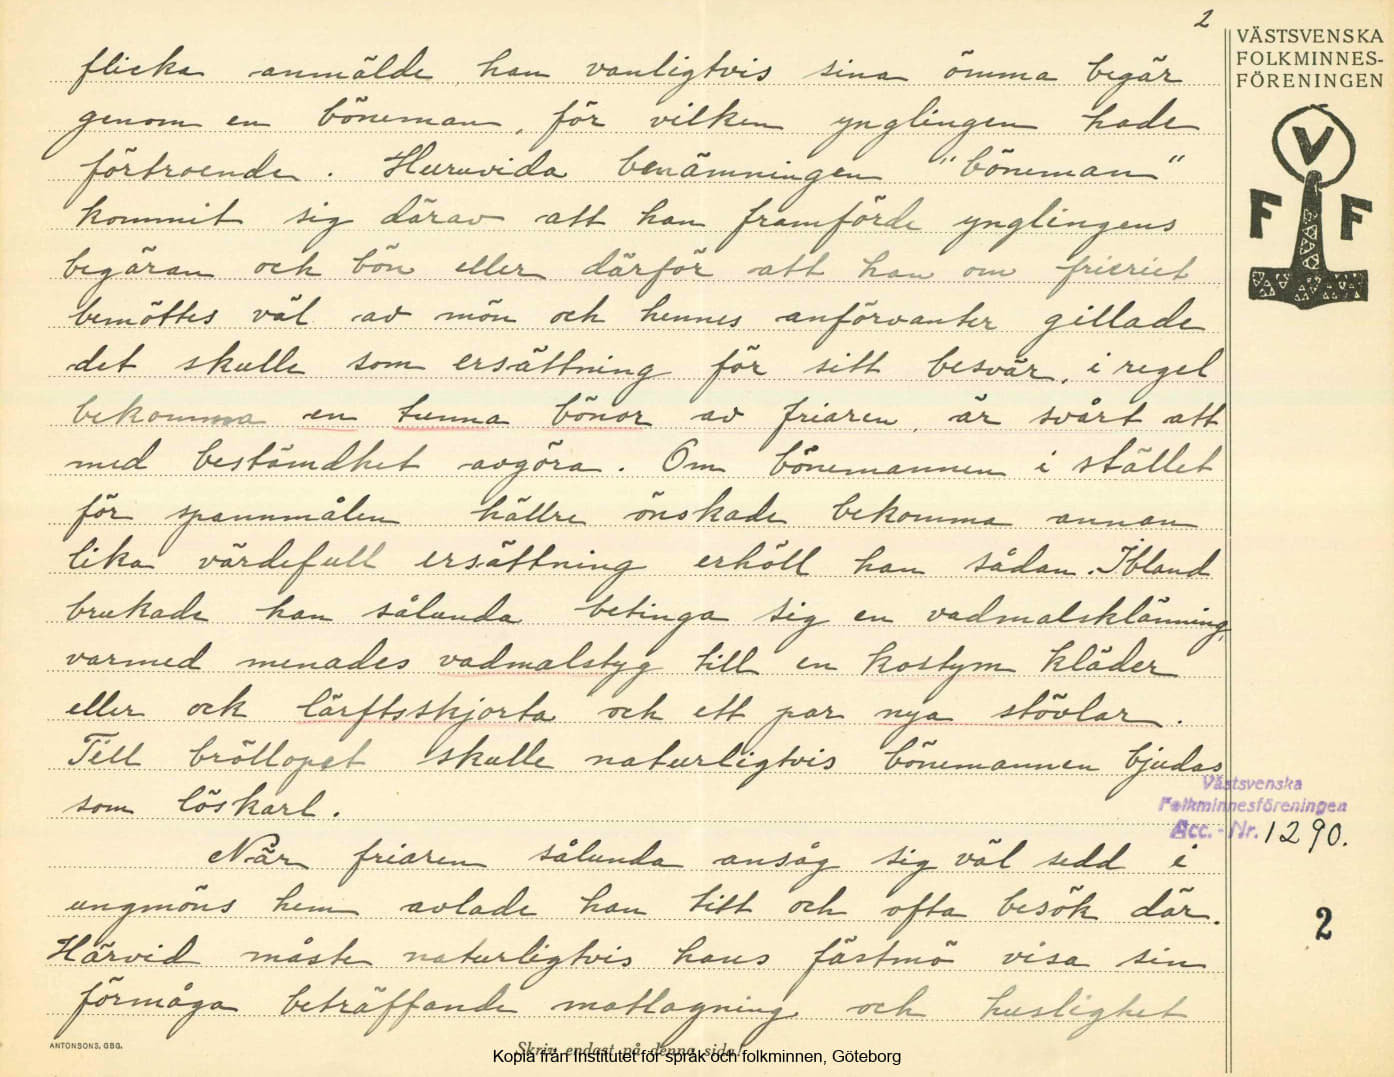 2
VÄSTSVENSKA
FOLKMINNES-
FÖRENINGEN
V
F F
flicka anmälde han vanligtvis sina ömma begär
genom en böneman, för vilken ynglingen hade
förtroende. Huruvida benämningen "böneman"
kommit sig därav att han framförde ynglingens
begäran och bön eller därför att han om frieriet
bemöttes väl av mön och hennes anförvanter gillade
det skulle som ersättning för sitt besvär, i regel
bekomma en tunna bönor av friaren, är svårt att
med bestämdhet avgöra. Om bönemannen i stället
för spannmålen hällre önskade bekomma annan
lika värdefull ersättning erhöll han sådan. Ibland
brukade han sålunda betinga sig en vadmalsklänning,
varmed menades vadmalstyg till en kostym kläder
eller ock lärftsskjorta och ett par nya stövlar.
Till bröllopet skulle naturligtvis bönemannen bjudas
som löskarl.
När friaren sålunda ansåg sig väl sedd i
ungmöns hem avlade han titt och ofta besök där.
Härvid måste naturligtvis hans fästmö visa sin
förmåga beträffande matlagning och huslighet
Västsvenska
Folkminnesföreningen
Acc. - Nr. 1290.
2
ANTONSONS, GBG.
Skriv endast på denna sida!
Kopia från Institutet för språk och folkminnen, Göteborg